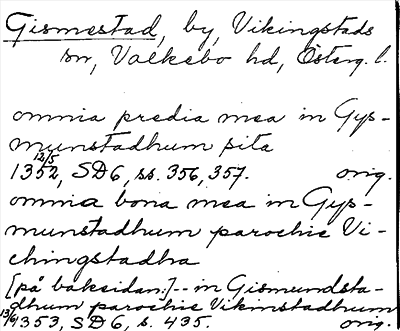 Gismestad, by, Vikingstads
sn, Valkebo hd, Österg. l.
omnia predia mea in Gys-
munstadhum sita
12/5
1352, SD6, ss. 356, 357. orig.
omnia bona mea in Gys-
munstadhum parochie Vi-
chingstadha
[på baksidan:] -- in Gismundsta-
dhum parochie Vikinstadhum
13/6 1353, SD6, s. 435. orig.